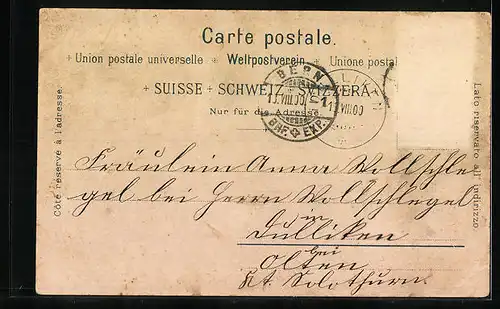 Carte postale.
+ Union postale universelle + Weltpostverein + Unione postal
+ SUISSE + SCHWEIZ + SVIZZERA +
Nur für die Adresse
BERN
13.VIII.00
BHF. EXP.
LIK
13.VIII.00
Côté réservé à l'adresse.
Lato riservato all'indirizzo
Fräulein Anna Wollschle
gel bei Herrn Wollschlegel
in
Dulliken
bei
Olten
Kt. Solothurn.